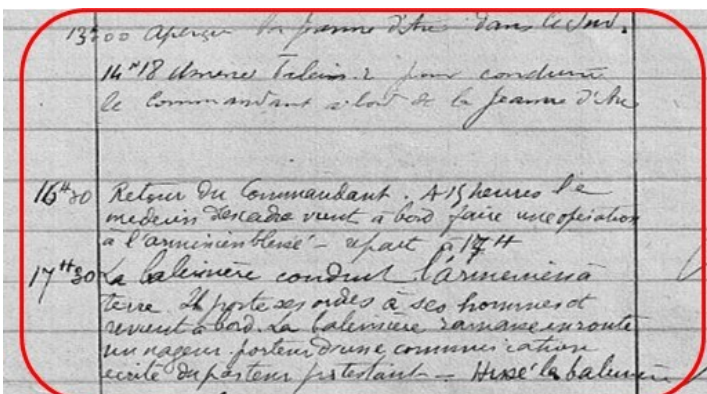 13h00 Aperçu la Jeanne d'Arc dans le Sud.
14h18 Amené Balein. 2 pour conduire
le Commandant à bord de la Jeanne d'Arc
16H30 Retour du Commandant. A 15 heures le
medecin d'escadre vient à bord faire une opération
à l'armenien blessé - repart à 17H
17H30 La baleinière conduit l'armenien à
terre. Il porte ses ordres à ses hommes et
revient à bord. La baleinière ramasse en route
un nageur porteur d'une communication
écrite du pasteur protestant - Hissé la baleinière